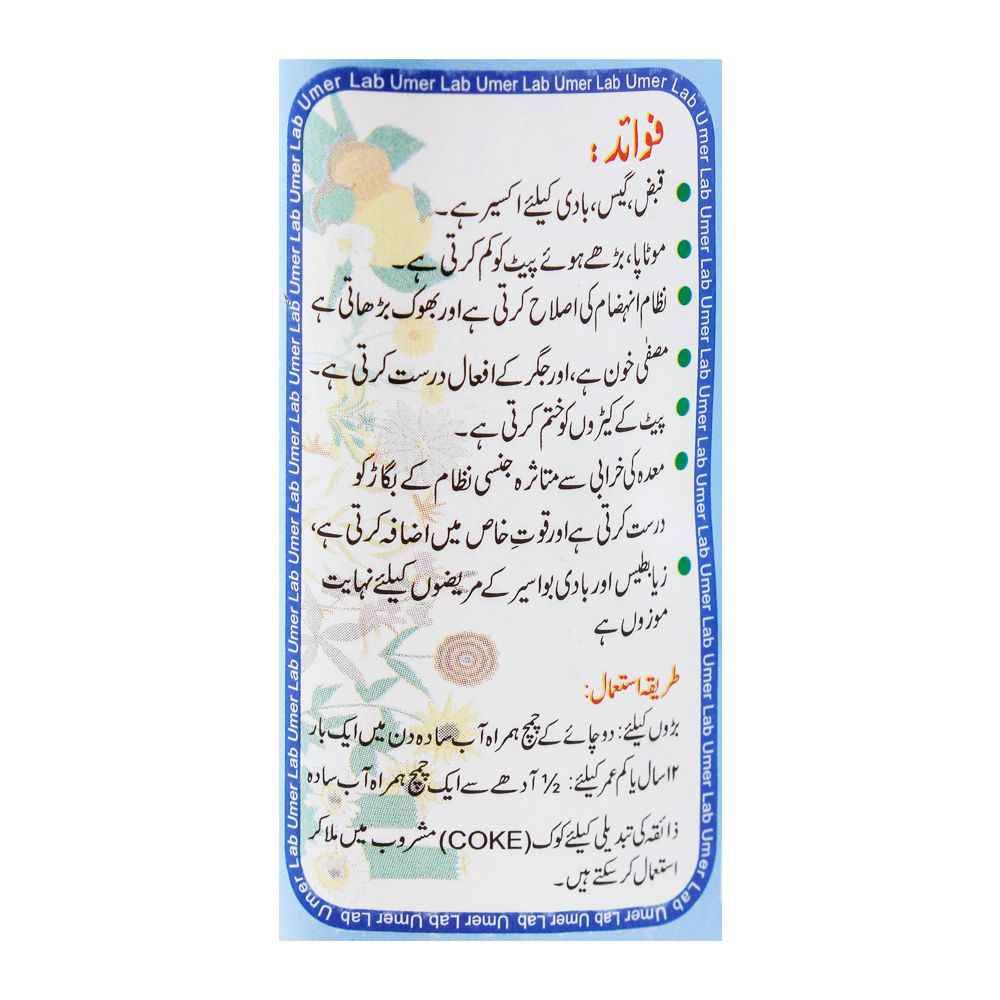 Umer Lab Umer Lab Umer Lab Umer Lab Umer Lab Umer Lab
فوائد:
قبض، گیس، بادی کیلئے اکسیر ہے۔
موٹاپا، بڑھے ہوئے پیٹ کو کم کرتی ہے۔
نظام انہضام کی اصلاح کرتی ہے اور بھوک بڑھاتی ہے
مصفٰی خون ہے، اور جگر کے افعال درست کرتی ہے۔
پیٹ کے کیڑوں کو ختم کرتی ہے۔
معدہ کی خرابی سے متاثرہ جنسی نظام کے بگاڑ کو
درست کرتی ہے اور قوتِ خاص میں اضافہ کرتی ہے،
زیابطیس اور بادی بواسیر کے مریضوں کیلئے نہایت
موزوں ہے
طریقہ استعمال:
بڑوں کیلئے: دو چائے کے چمچ ہمراہ آب سادہ دن میں ایک بار
۱۲ سال یا کم عمر کیلئے: ½ آدھے سے ایک چمچ ہمراہ آب سادہ
ذائقہ کی تبدیلی کیلئے کوک (COKE) مشروب میں ملا کر
استعمال کر سکتے ہیں۔